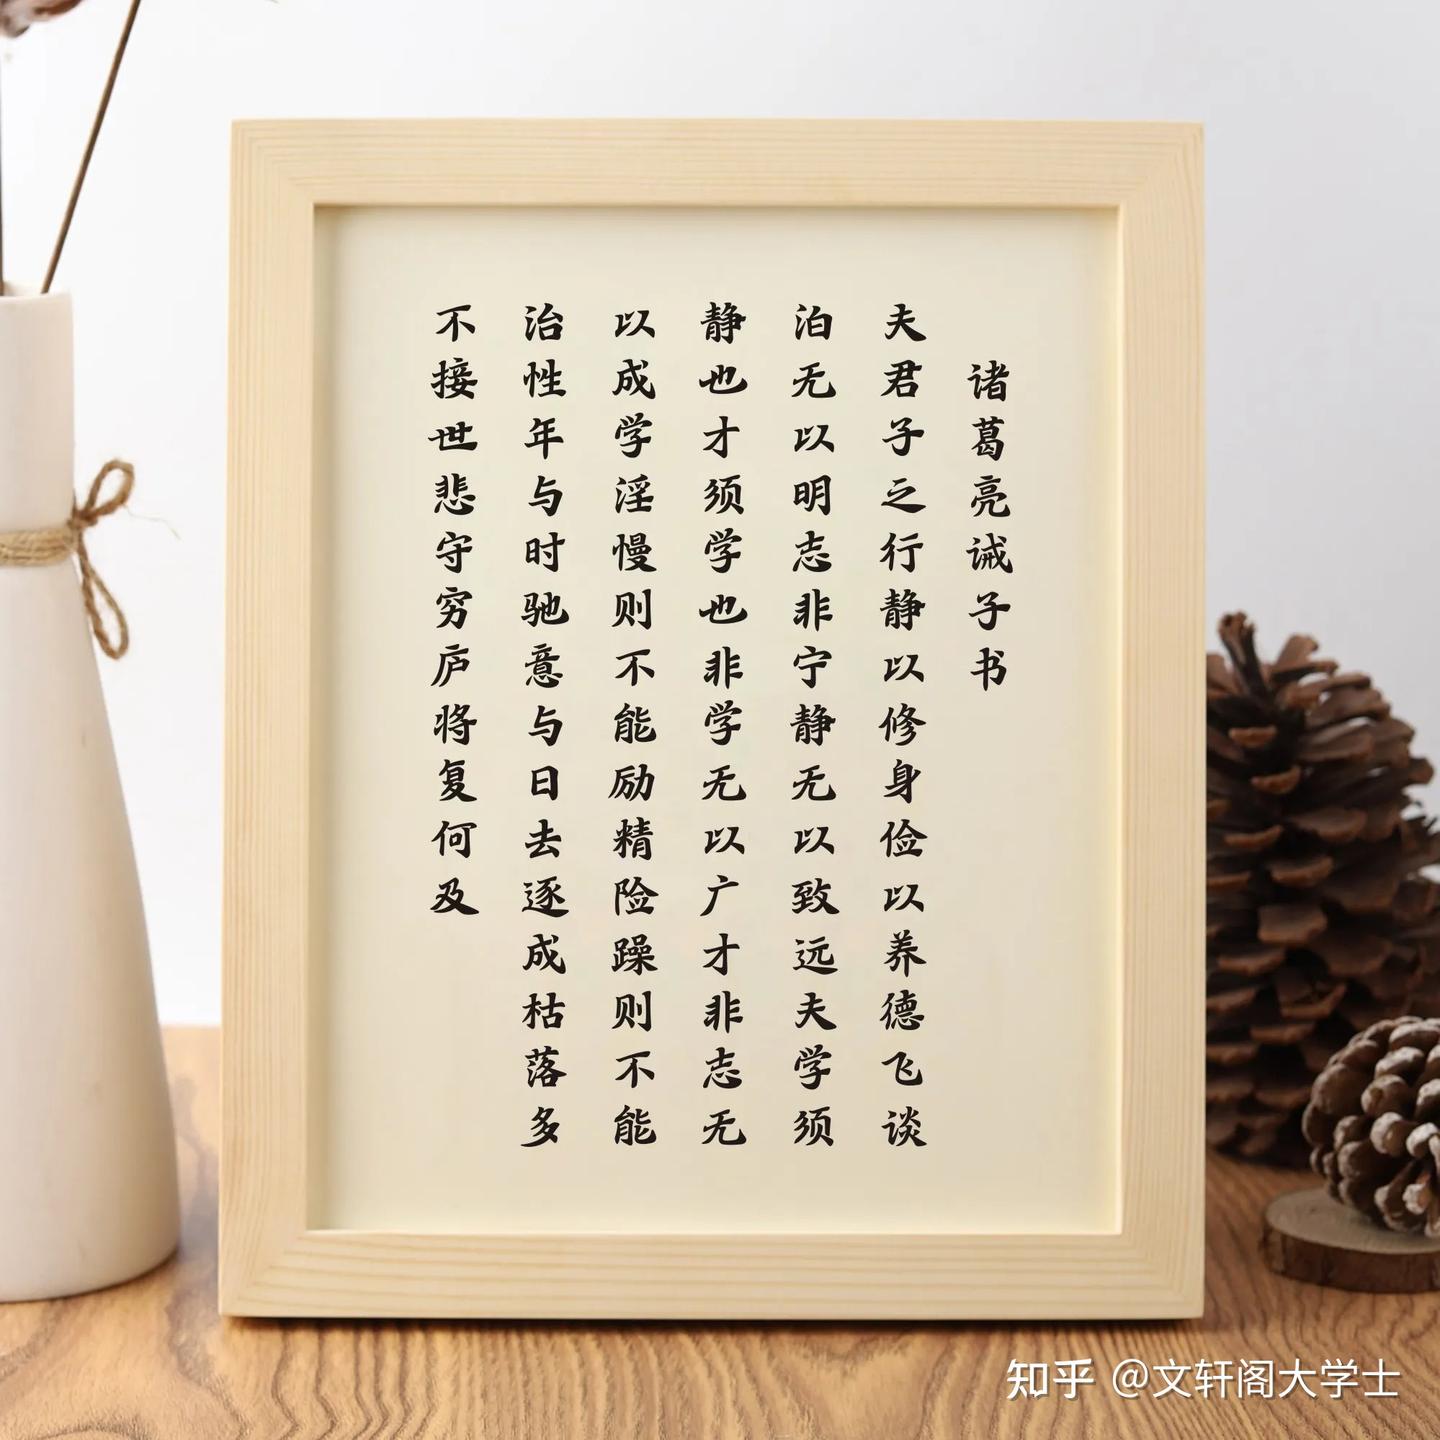 诸葛亮诫子书
夫君子之行静以修身俭以养德飞谈
泊无以明志非宁静无以致远夫学须
静也才须学也非学无以广才非志无
以成学淫慢则不能励精险躁则不能
治性年与时驰意与日去遂成枯落多
不接世悲守穷庐将复何及
知乎 @文轩阁大学士